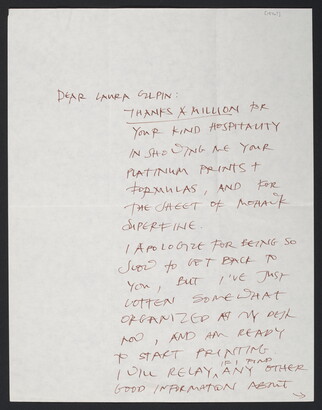 DEAR LAURA GILPIN:
THANKS A MILLION FOR
YOUR KIND HOSPITALITY
IN SHOWING ME YOUR
PLATINUM PRINTS +
FORMULAS, AND FOR
THE SHEET OF MOHAWK
SUPERFINE.
I APOLOGIZE FOR BEING SO
SLOW TO GET BACK TO
YOU, BUT I'VE JUST
GOTTEN SOMEWHAT
ORGANIZED AT MY DESK
NOW, AND AM READY
TO START PRINTING
I WILL RELAY, IF I FIND ANY OTHER
GOOD INFORMATION ABOUT
→